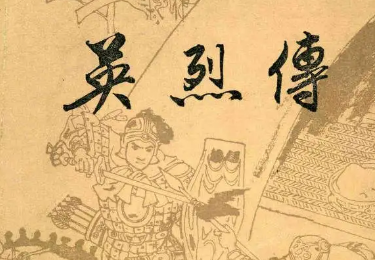 英烈傳